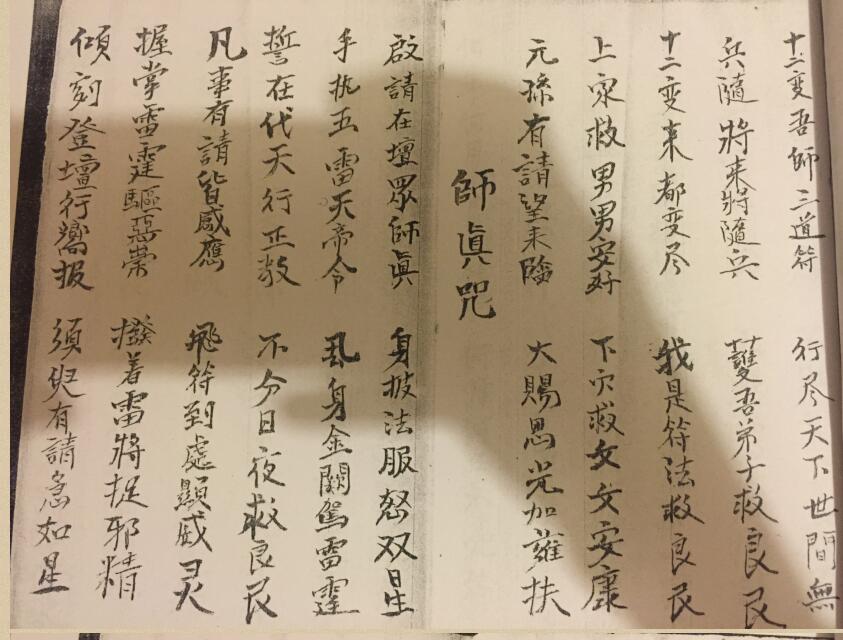 十二变吾師三道符 行尽天下世間無
兵隨將来將隨兵 䕶吾弟子救良民
十二变来都变尽 我是符法救良民
上家救男男安好 下穴救女女安康
元孫有請望来臨 大賜恩光加蕹扶
師真咒
啟請在壇眾師真 身披法服怒双星
手执五雷天帝令 乱身金闕駕雷霆
誓在代天行正教 不分日夜救良民
凡事有請皆感應 飛符到處顯威灵
握掌雷霆驅惡祟 撥着雷將捉邪精
傾刻登壇行嚮报 須臾有請急如星